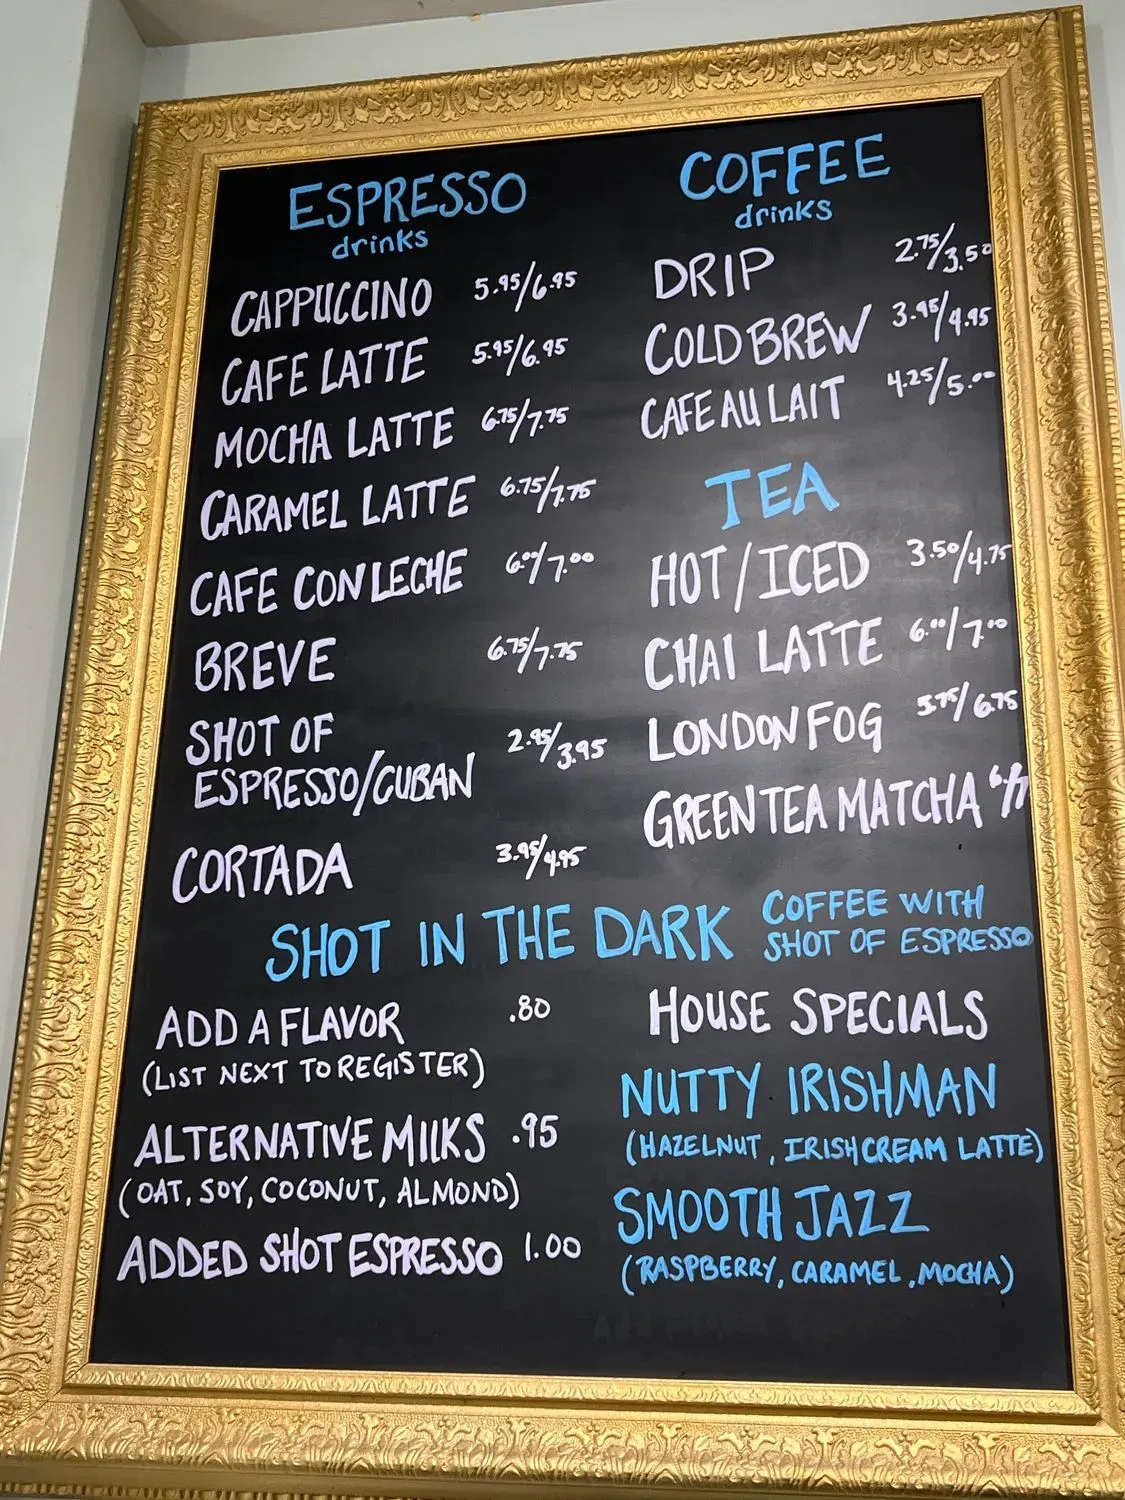 ESPRESSO
drinks
CAPPUCCINO 5.95/6.95
CAFE LATTE 5.95/6.95
MOCHA LATTE 6.75/7.75
CARAMEL LATTE 6.75/7.75
CAFE CON LECHE 6.00/7.00
BREVE 6.75/7.75
SHOT OF
ESPRESSO/CUBAN 2.95/3.95
CORTADA 3.95/4.95
COFFEE
drinks
DRIP 2.75/3.50
COLD BREW 3.95/4.95
CAFE AU LAIT 4.25/5.00
TEA
HOT/ICED 3.50/4.75
CHAI LATTE 6.00/7.00
LONDON FOG 5.75/6.75
GREEN TEA MATCHA
SHOT IN THE DARK
COFFEE WITH
SHOT OF ESPRESSO
ADD A FLAVOR .80
(LIST NEXT TO REGISTER)
ALTERNATIVE MILKS .95
(OAT, SOY, COCONUT, ALMOND)
ADDED SHOT ESPRESSO 1.00
HOUSE SPECIALS
NUTTY IRISHMAN
(HAZELNUT, IRISH CREAM LATTE)
SMOOTH JAZZ
(RASPBERRY, CARAMEL, MOCHA)